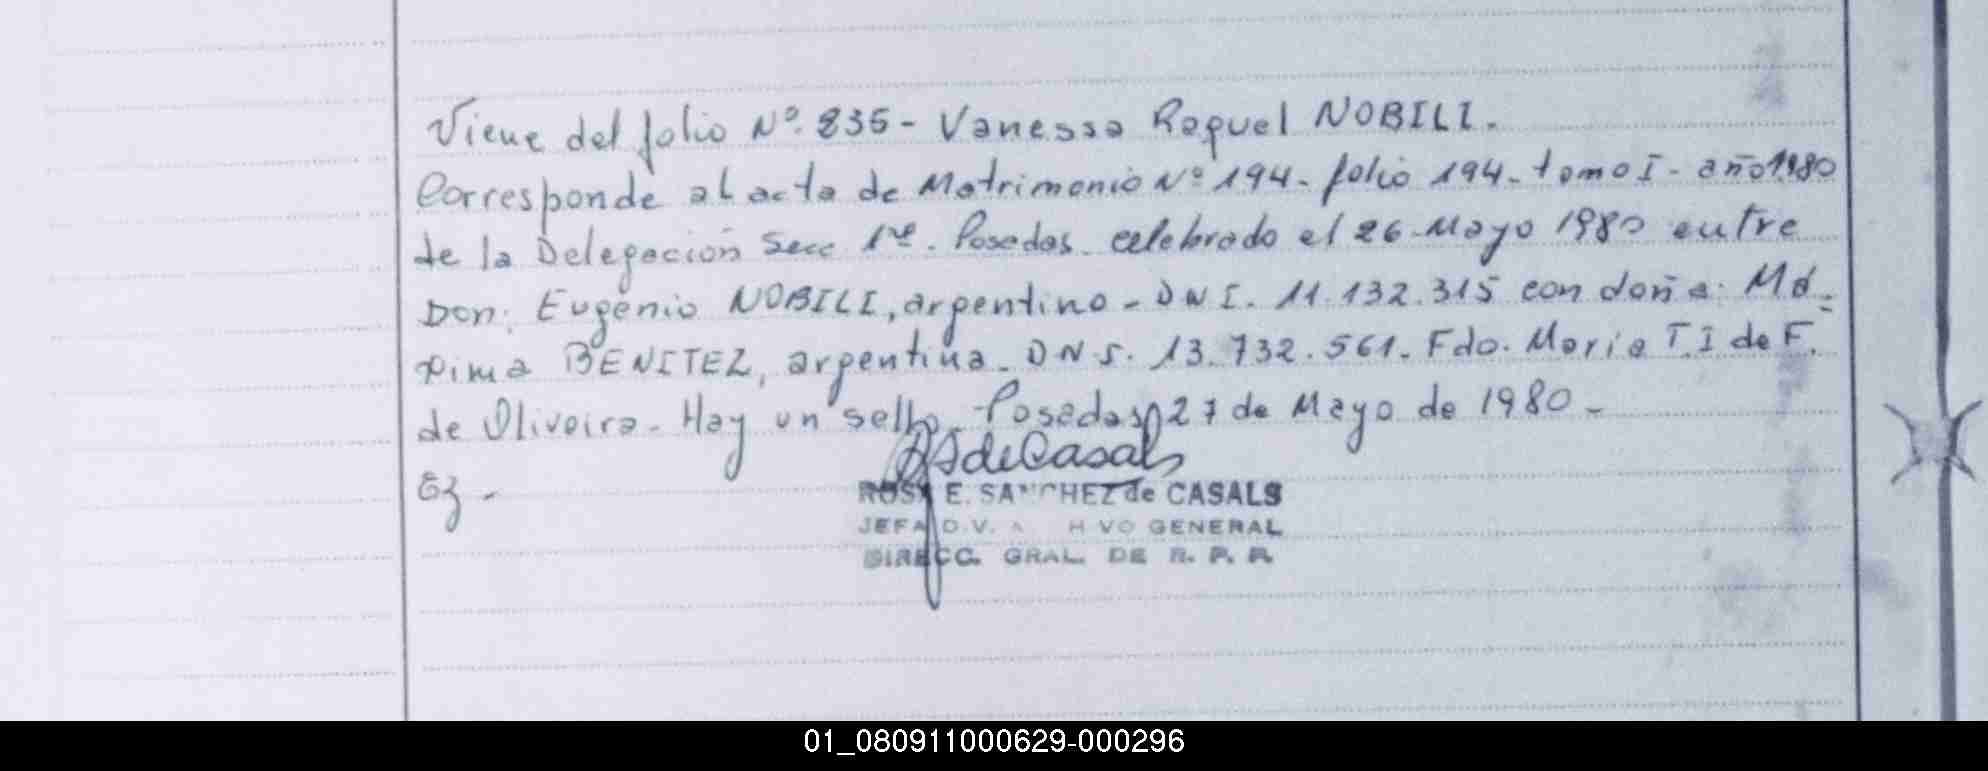 Viene del folio Nº. 835 - Vanessa Raquel NOBILI.
Corresponde al acta de Matrimonio Nº 194 - folio 194 - tomo I - año 1980
de la Delegación Secc 1ra. Posadas. celebrado el 26 - Mayo 1980 entre
Don: Eugenio NOBILI, argentino - D N I. 11.132.315 con doña: Má-
xima BENITEZ, argentina - D N I. 13.732.561. Fdo. Maria T. I de F.
de Oliveira - Hay un sello - Posadas, 27 de Mayo de 1980 -
Ez -
RSdeCasals
ROSA E. SANCHEZ de CASALS
JEFA D.V. A H VO GENERAL
DIRECC. GRAL. DE R. P. P.
01_080911000629-000296